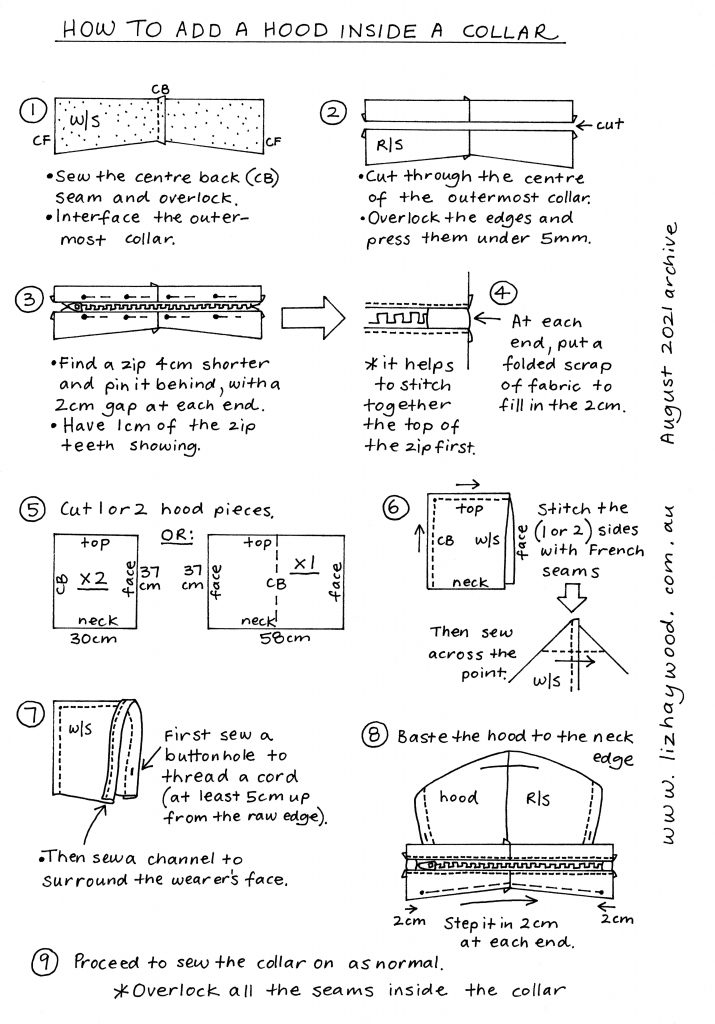 HOW TO ADD A HOOD INSIDE A COLLAR
①
CB
W/S
CF
CF
•Sew the centre back (CB)
seam and overlock.
•Interface the outer-
most collar.
②
cut
R/S
•Cut through the centre
of the outermost collar.
•Overlock the edges and
press them under 5mm.
③
•Find a zip 4cm shorter
and pin it behind, with a
2cm gap at each end.
• Have 1cm of the zip
teeth showing.
④
At each
end, put a
folded scrap
of fabric to
fill in the 2cm.
*it helps
to stitch
together
the top of
the zip first.
⑤ Cut 1 or 2 hood pieces.
top
CB
x2
face
37
cm
neck
30cm
OR:
37
cm
top
face
CB
x1
face
neck
58cm
⑥
top
CB
W/S
face
neck
Stitch the
(1 or 2) sides
with French
seams
Then sew
across the
point.
W/S
⑦
W/S
First sew a
buttonhole to
thread a cord
(at least 5cm up
from the raw edge).
•Then sew a channel to
surround the wearer's face.
⑧ Baste the hood to the neck
edge
hood
R/S
2cm
2cm
Step it in 2cm
at each end.
⑨ Proceed to sew the collar on as normal.
*Overlock all the seams inside the collar
www.lizhaywood.com.au August 2021 archive